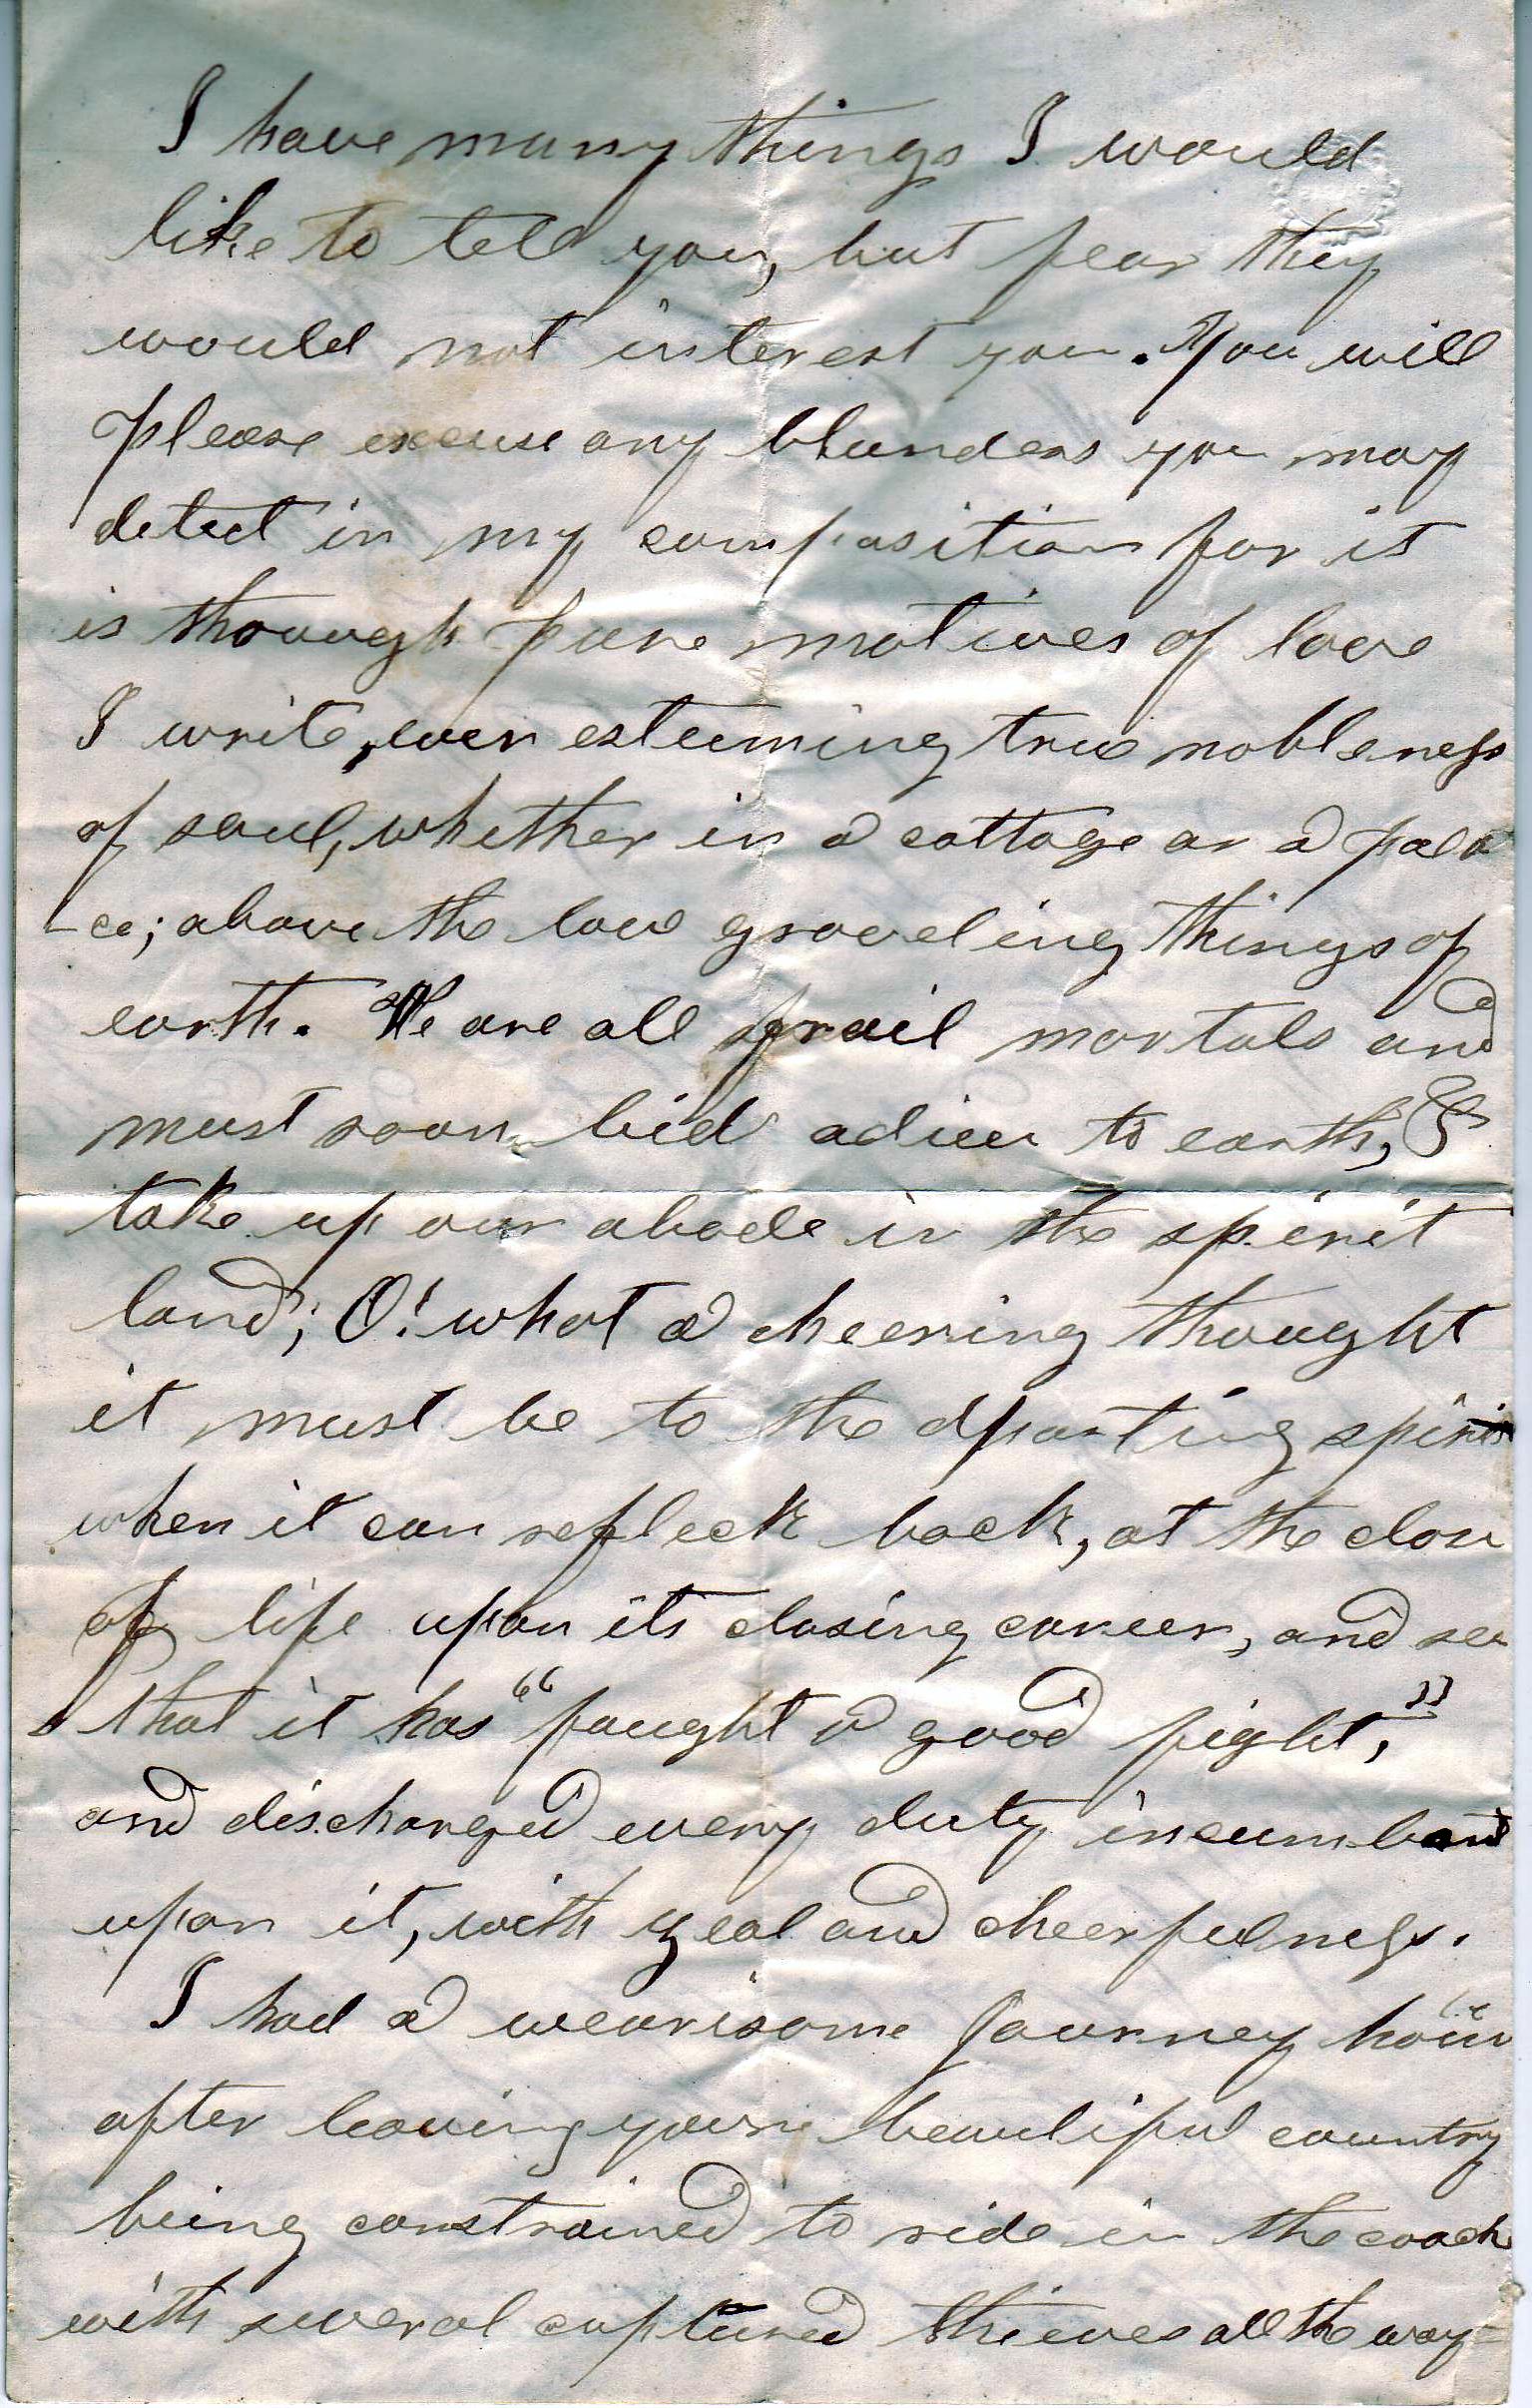 I have many things I would
like to tell you, but fear they
would not interest you. You will
please excuse any blunders you may
detect in my composition for it
is through pure motives of love
I write, ever esteeming true nobleness
of soul, whether in a cottage or a pala
-ce; above the low groveling things of
earth. We are all frail mortals and
must soon bid adieu to earth, &
take up our abode in the spirit
land; O! what a cheering thought
it must be to the dparting spirit
when it can reflect back, at the close
of life upon its closing career, and see
that it has "fought a good fight,"
and discharged every duty incumbent
upon it, with zeal and cheerfulness.
I had a wearisome Journey home
after leaving youre beautiful country
being constrained to ride in the coach
with several captured thieves all the way